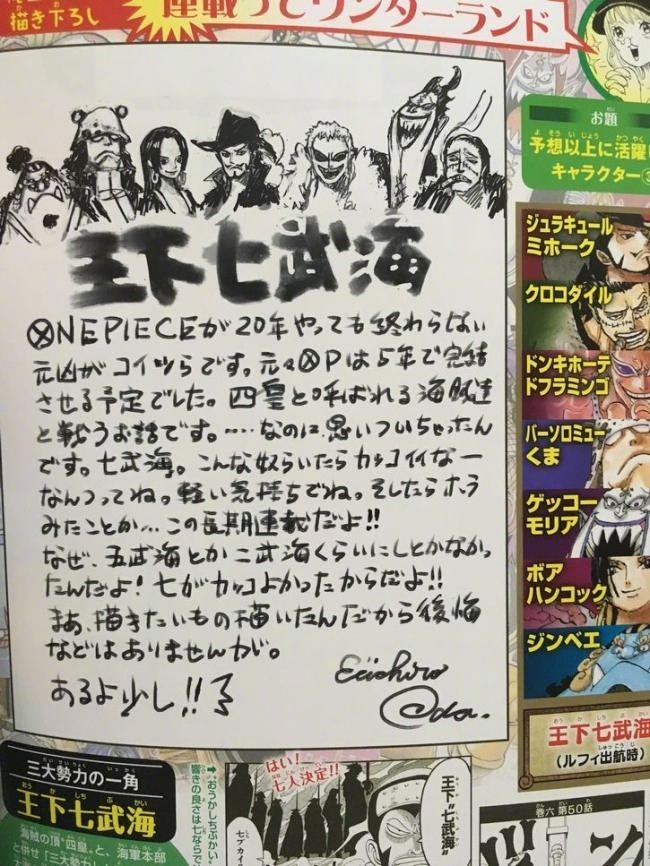 描き下ろし
連載ってワンダーランド
王下七武海
ONEPIECEが20年やっても終わらない
元凶がコイツらです。元々OPは5年で完結
させる予定でした。四皇と呼ばれる海賊達
と戦うお話です。……なのに思いついちゃったん
です。七武海。こんな奴らいたらカッコイイなー
なんつってね。軽い気持ちでね。そしたらホラ
みたことか…この長期連載だよ!!
なぜ、五武海とか二武海くらいにしとかなかっ
たんだよ!七がカッコよかったからだよ!!
まあ、描きたいもの描いたんだから後悔
などはありませんが。
あるよ少し!!
Eiichiro
Oda.
お題
予想以上に活躍
キャラクター③
ジュラキュール
ミホーク
クロコダイル
ドンキホーテ
ドフラミンゴ
バーソロミュー
くま
ゲッコー
モリア
ボア
ハンコック
ジンベエ
王下七武海
(ルフィ出航時)
三大勢力の一角
王下七武海
海賊の頂“四皇”と、海軍本部
と併せ「三大勢力」
➡おうかしちぶかい
響きの良さは七ならで
はい!
七人決定!!
王下“七武海”
七ブカイ
巻六 第50話